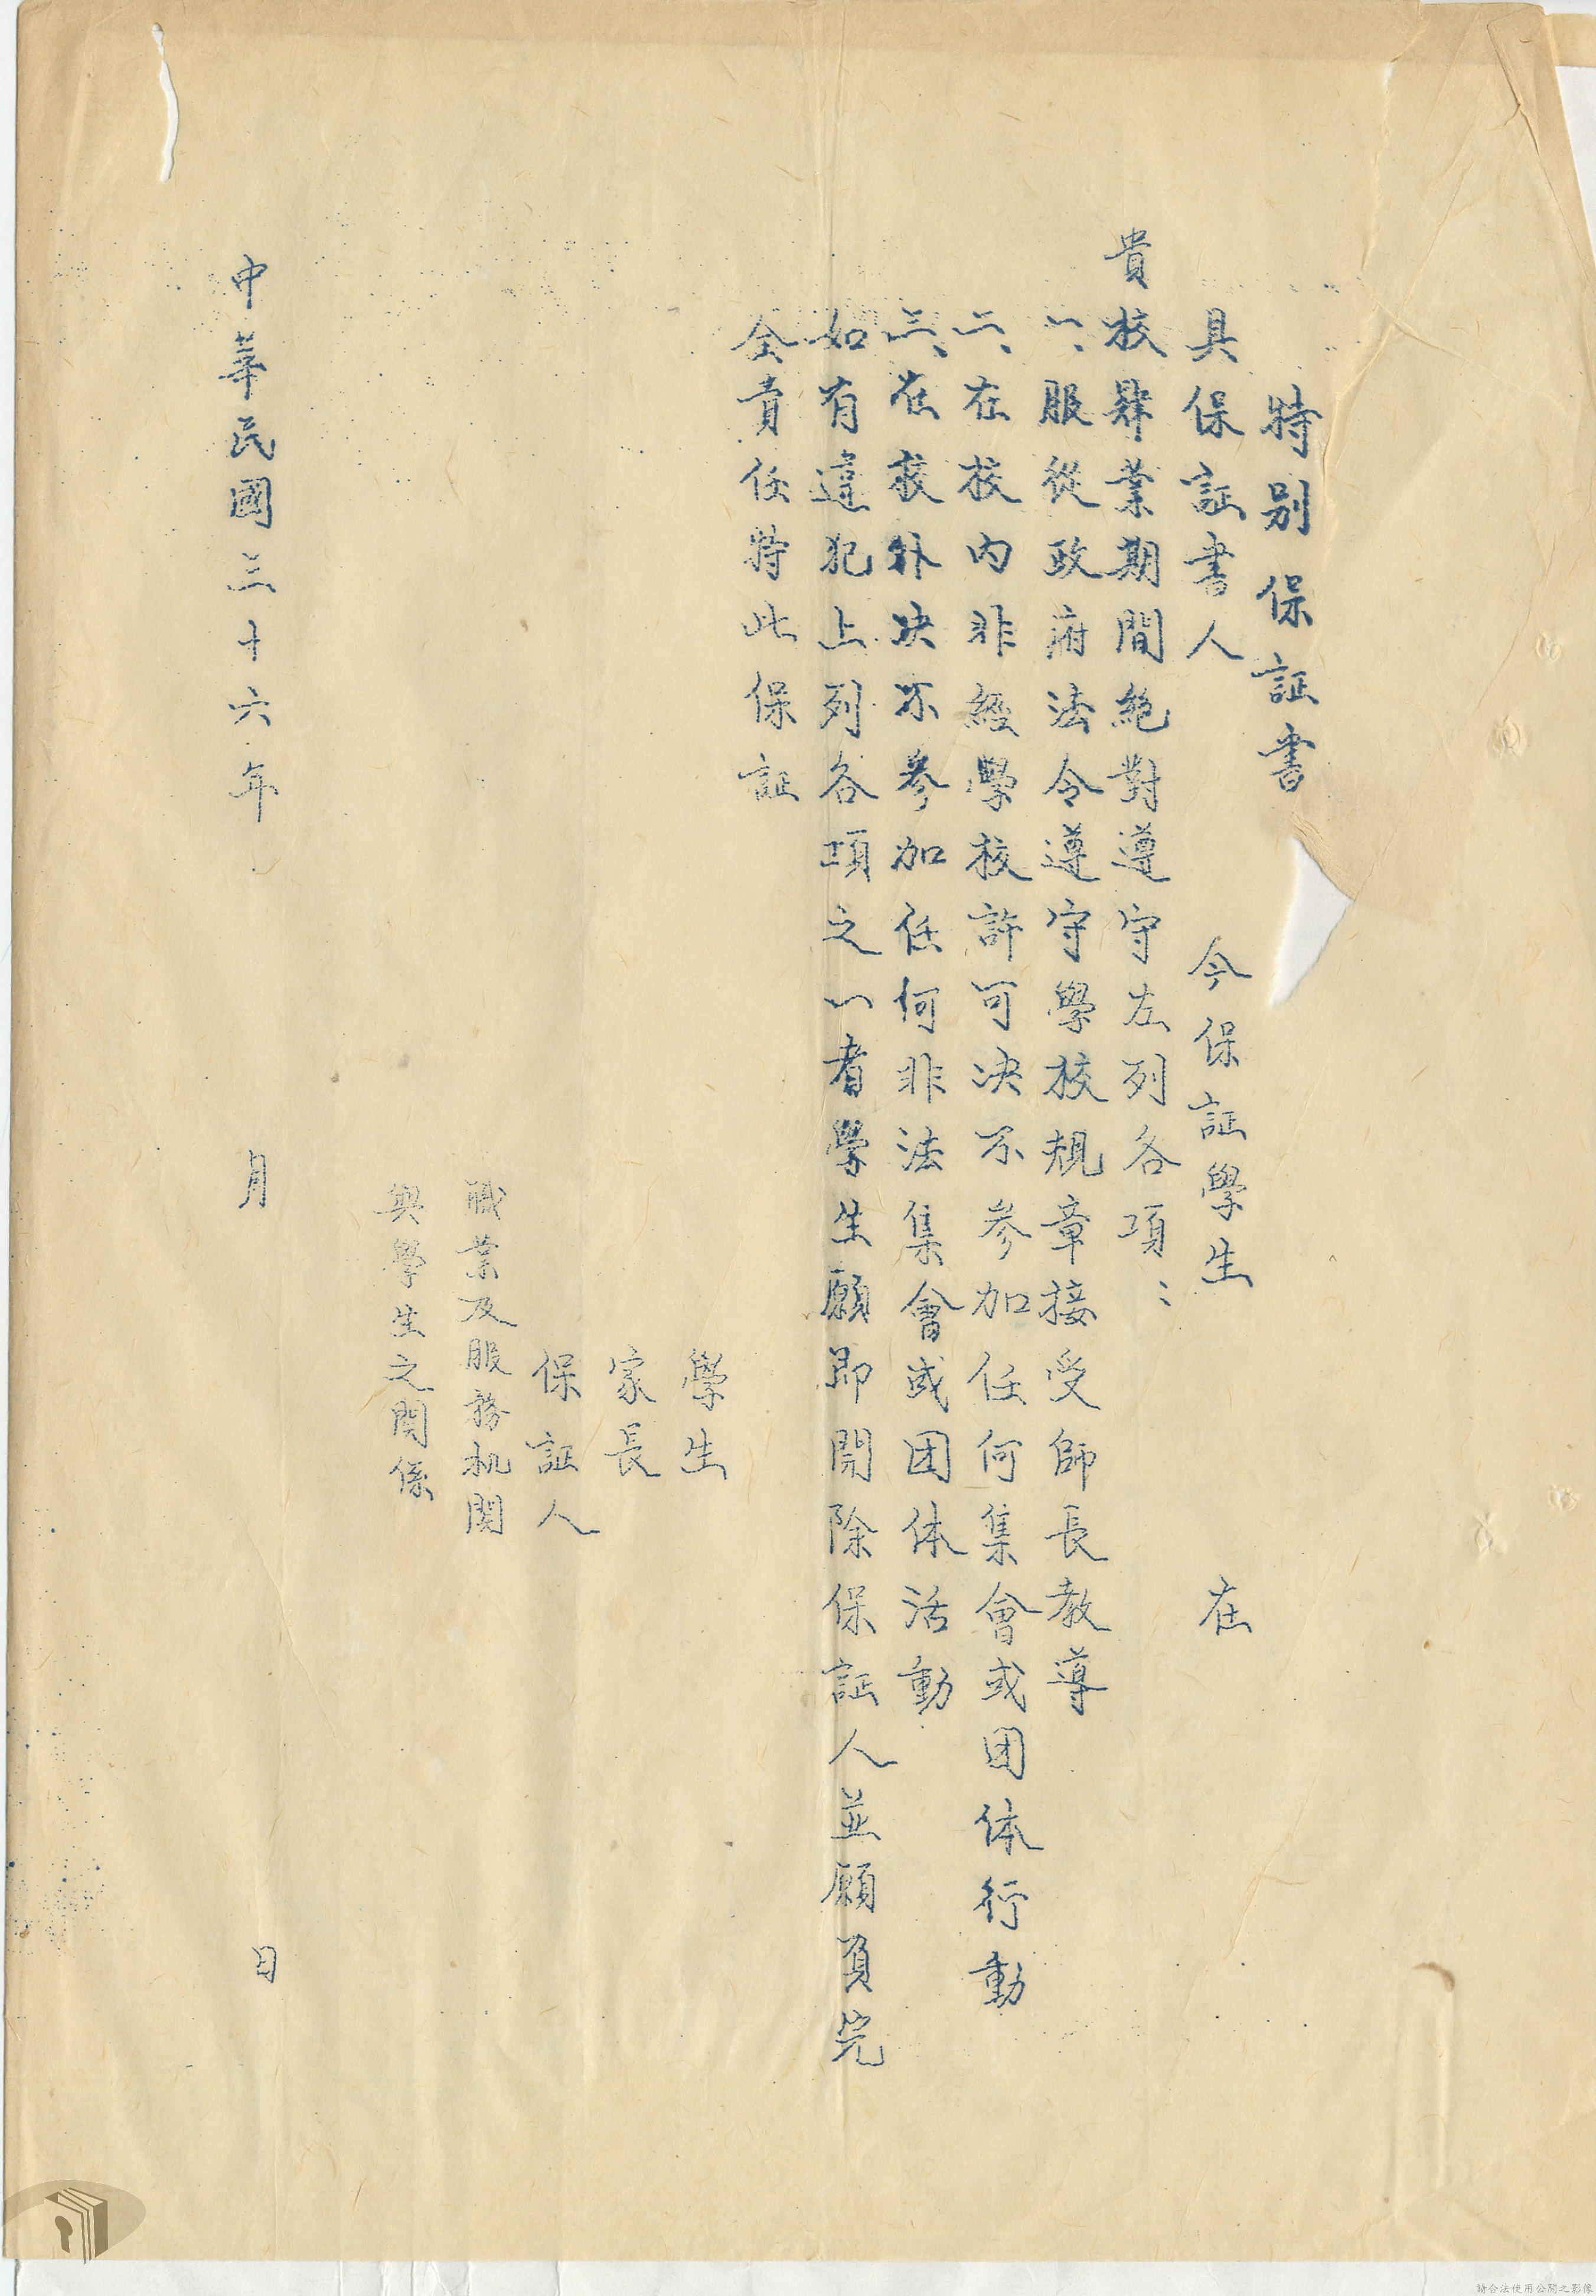 特別保証書
具保証書人　　　今保証學生　　　在
貴校肄業期間絕對遵守左列各項：
一、服從政府法令遵守學校規章接受師長教導
二、在校內非經學校許可決不参加任何集會或团体行動
三、在校外决不参加任何非法集會或团体活動
如有違犯上列各項之一者學生願即開除保証人並願負完
全責任特此保証
學生
家長
保証人
職業及服務机関
與學生之関係
中華民國三十六年　　　月　　　日
請合法使用公開之影像